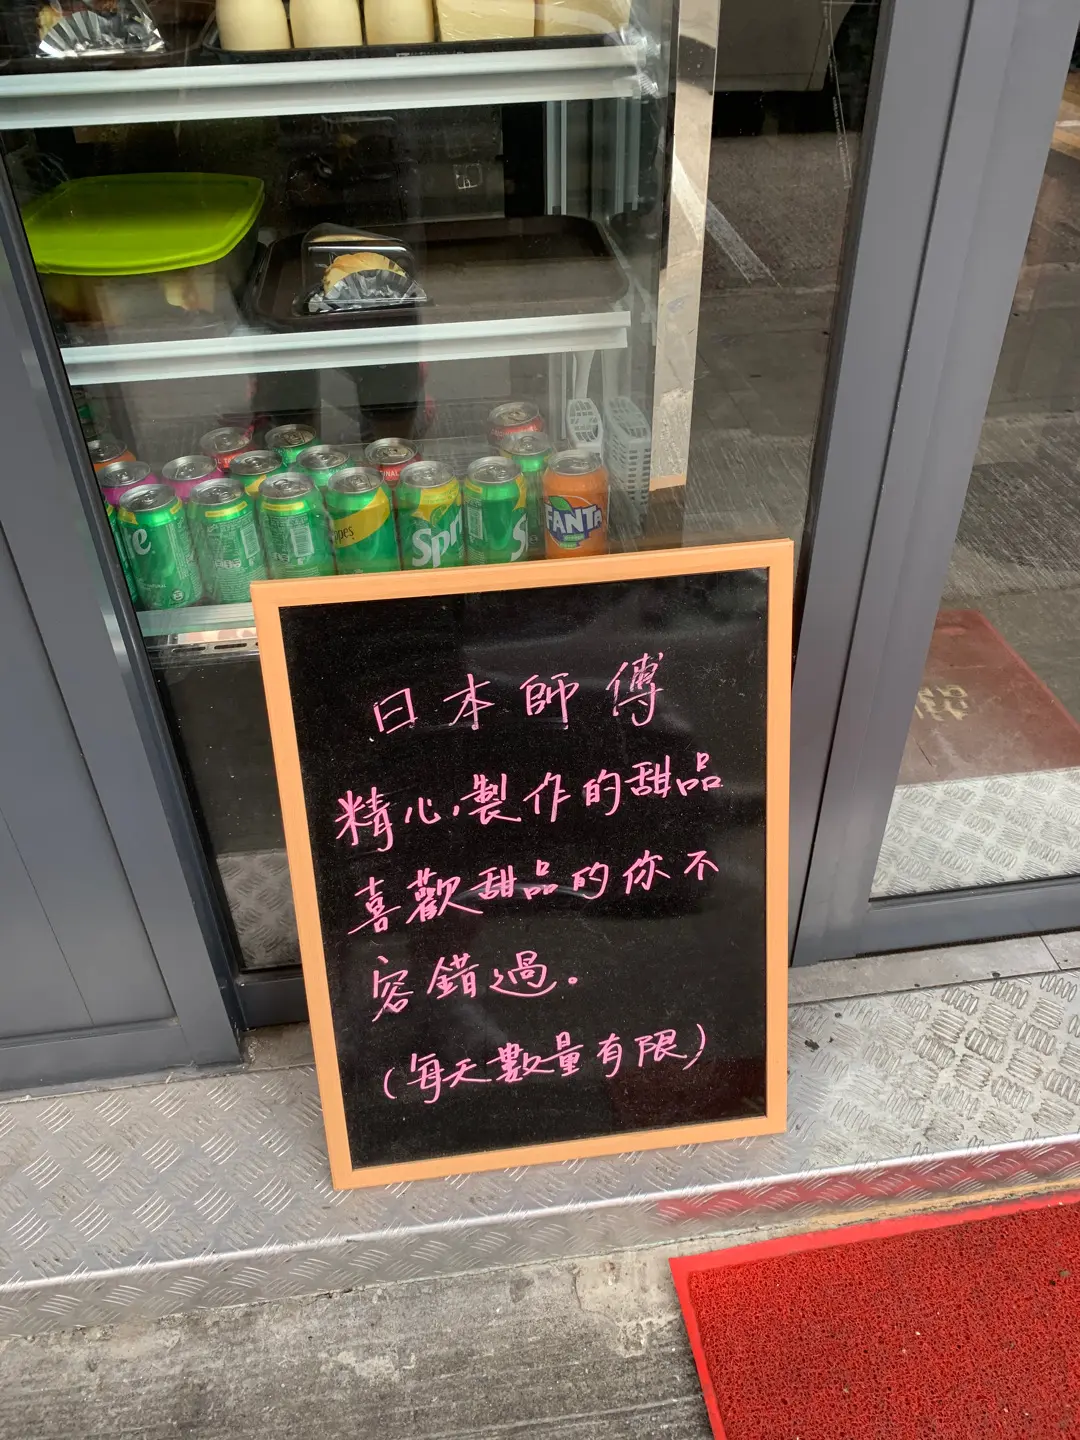 Sprite
FANTA
日本師傅
精心製作的甜品
喜歡甜品的你不
容錯過。
(每天數量有限)